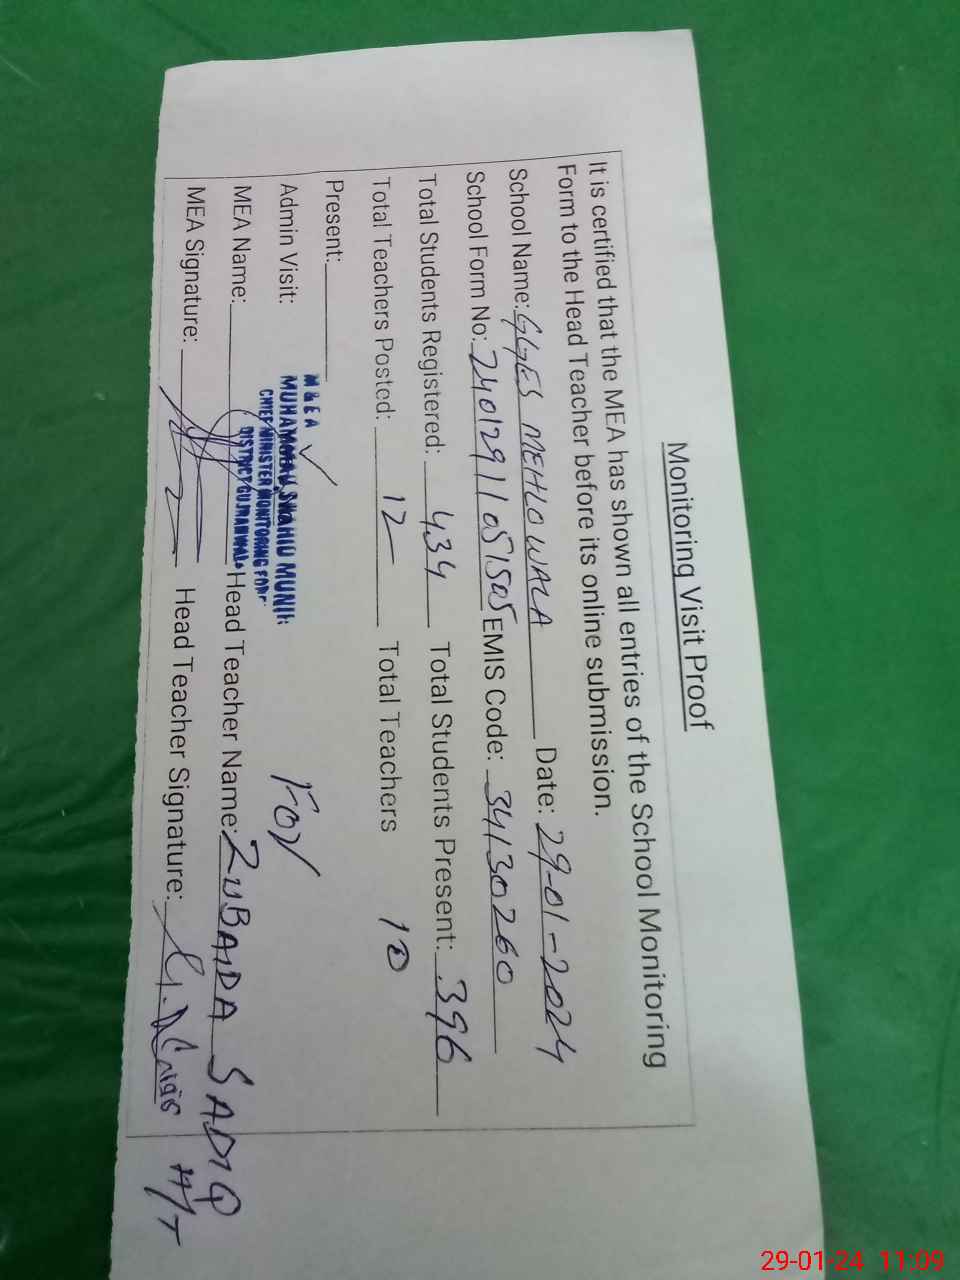 Monitoring Visit Proof
It is certified that the MEA has shown all entries of the School Monitoring
Form to the Head Teacher before its online submission.
School Name: GGES MEHLOWALA Date: 29-01-2024
School Form No: 24012911051505 EMIS Code: 34130260
Total Students Registered: 434 Total Students Present: 396
Total Teachers Posted: 12 Total Teachers 10
Present:
Admin Visit: ✓ For
M & E A
MUHAMMAD SHAHID MUNIR
CHIEF MINISTER MONITORING FORC
DISTRICT GUJRANWALA
MEA Name: Head Teacher Name: ZUBAIDA SADIQ
MEA Signature: Head Teacher Signature: H/T
29-01-24 11:09